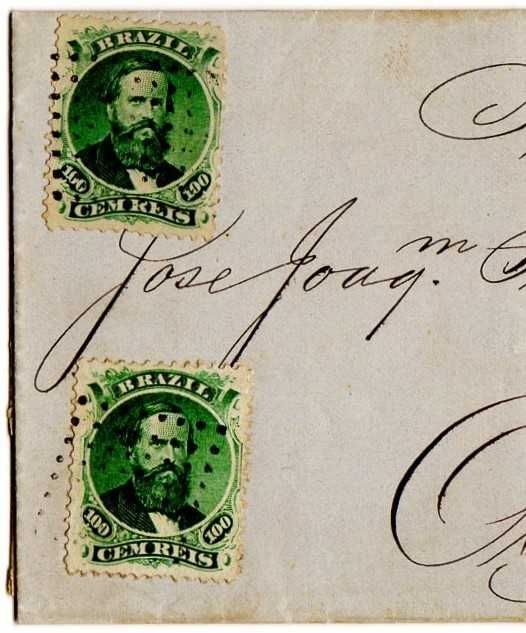 BRAZIL
100 100
CEM REIS
Jose Joaq. m
BRAZIL
100 100
CEM REIS